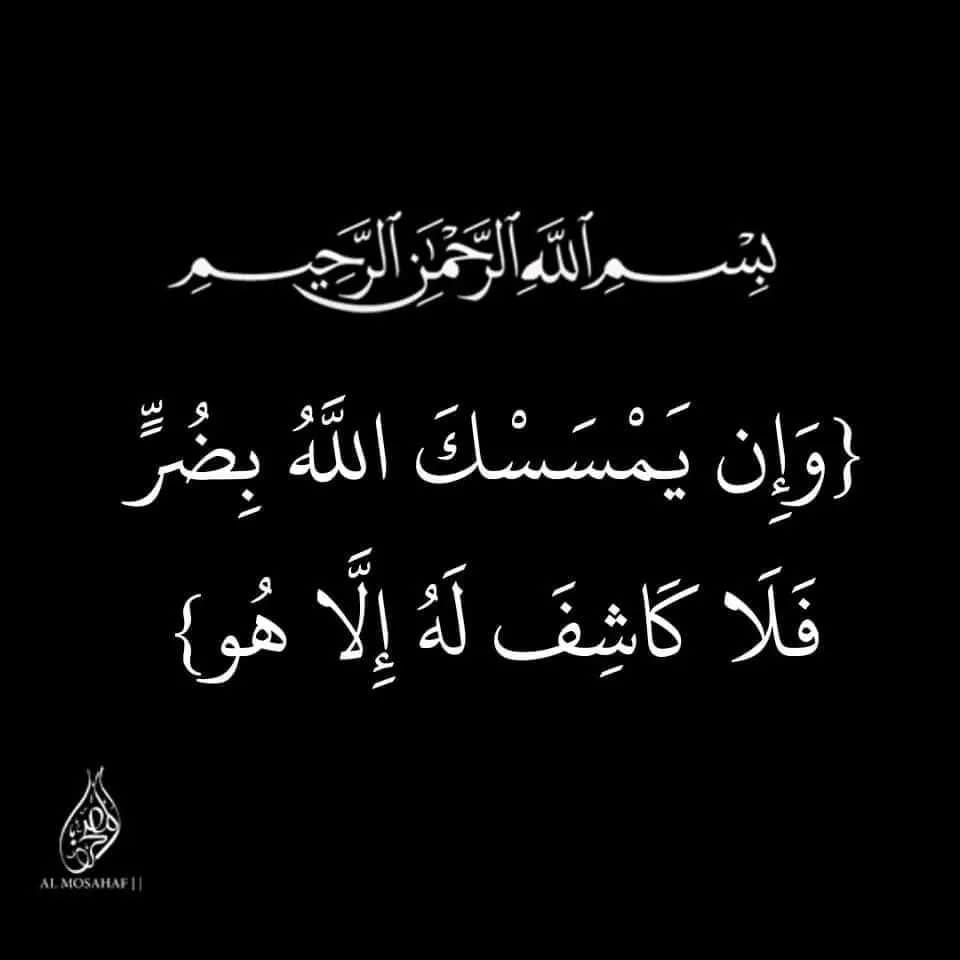 بِسْمِ ٱللَّهِ ٱلرَّحْمَٰنِ ٱلرَّحِيمِ
{وَإِن يَمْسَسْكَ اللَّهُ بِضُرٍّ
فَلَا كَاشِفَ لَهُ إِلَّا هُو}
AL MOSAHAF ||